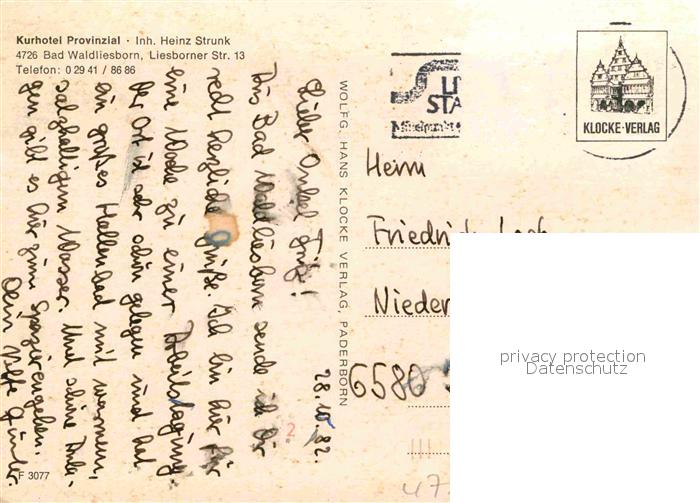 Kurhotel Provinzial · Inh. Heinz Strunk
4726 Bad Waldliesborn, Liesborner Str. 13
Telefon: 0 29 41 / 86 86
28.10.82.
Lieber Onkel Fritz!
Aus Bad Waldliesborn sende ich Dir
recht herzliche Grüße. Ich bin hier für
eine Woche zu einer Arbeitstagung.
Der Ort ist sehr schön gelegen und hat
ein großes Hallenbad mit warmem,
salzhaltigem Wasser. Und schöne Anla-
gen gibt es hier zum Spazierengehen.
Dein Neffe Günter.
F 3077
WOLFG. HANS KLOCKE VERLAG, PADERBORN
STA
Mittelpunkt
KLOCKE-VERLAG
Herrn
Friedrich
Nieder
6580
2
47
privacy protection
Datenschutz